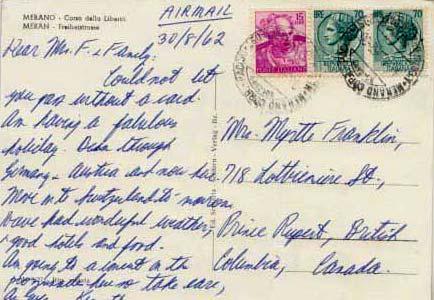 MERANO - Corso della Libertà
MERAN - Freiheitstrasse
AIRMAIL
30/8/62
Dear Mrs. F. & Family:
Could not let
you pass without a card.
Am having a fabulous
holiday. Been through
Germany - Austria and now here.
Move into Switzerland to-morrow.
Have had wonderful weather,
good hotels and food.
Am going to a concert in the
promenade here so take care,
As Ever
15
POSTE ITALIANE
70
MERANO
Mrs. Myrtle Franklin,
718 Lotbiniere St.,
Prince Rupert, British
Columbia, Canada.